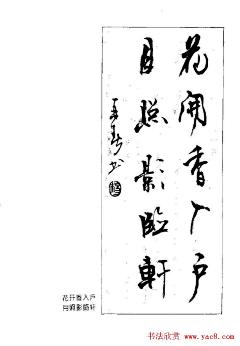 花開香入户
月照影临軒
花开香入户
月照影临轩
书法欣赏 www.yac8.com